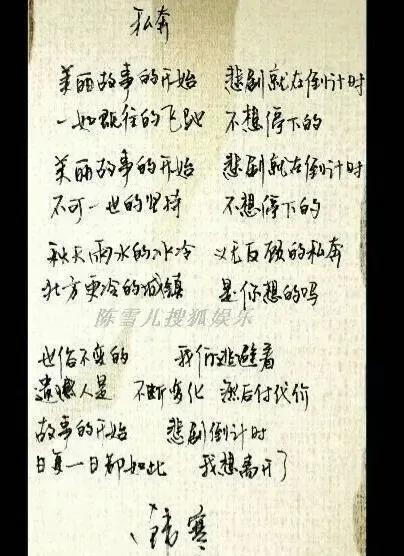 私奔
美丽故事的开始 悲剧就在倒计时
一如既往的飞驰 不想停下的
美丽故事的开始 悲剧就在倒计时
不可一世的坚持 不想停下的
秋天雨水的冰冷 义无反顾的私奔
北方更冷的城镇 是你想的吗
陈雪儿搜狐娱乐
世俗不变的 我们逃避着
遗憾人是 不断 化 然后付代价
故事的开始 悲剧倒计时
日 一日都如此 我想离开了